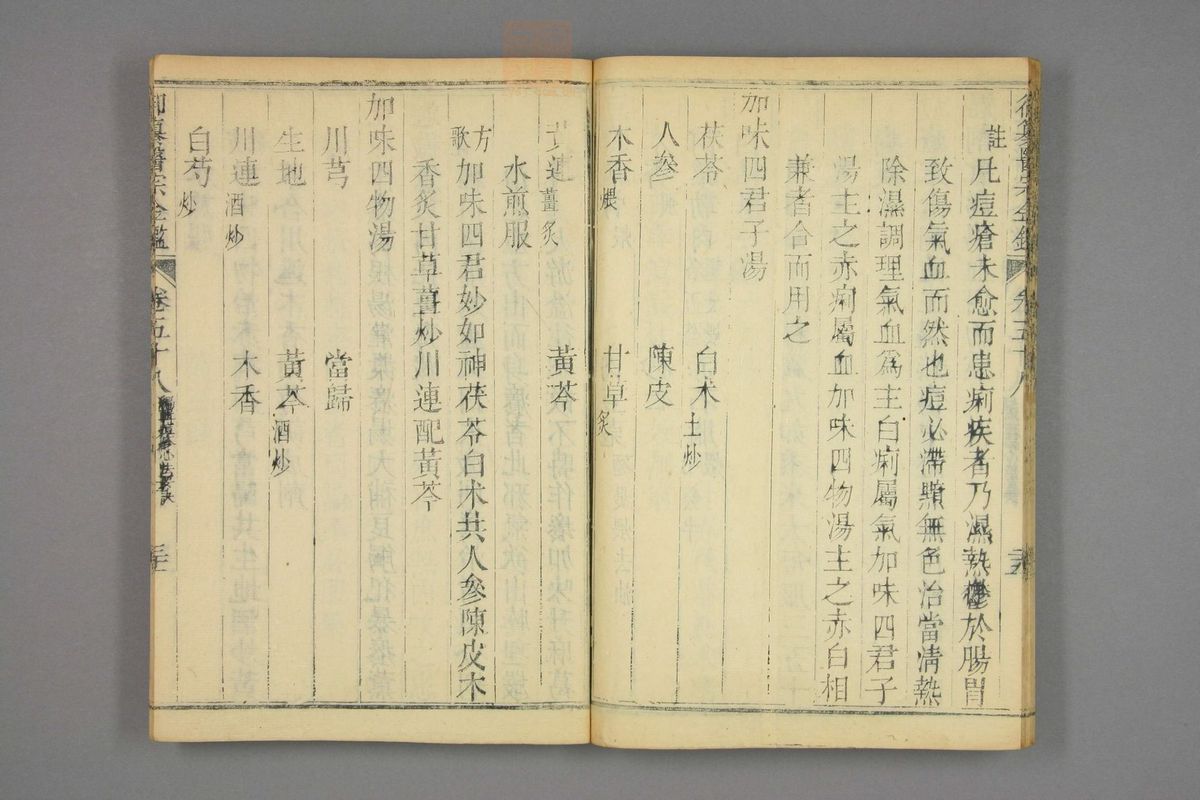 註凡痘瘡未愈而患痢疾者乃濕熱鬱於腸胃
致傷氣血而然也痘必滯黯無色治當清熱
除濕調理氣血爲主白痢屬氣加味四君子
湯主之赤痢屬血加味四物湯主之赤白相
兼者合而用之
加味四君子湯
茯苓 白术土炒
人參 陳皮
木香煨 甘草炙
黃連薑炙 黃芩
水煎服
方歌 加味四君妙如神茯苓白术共人參陳皮木
香炙甘草薑炒川連配黃芩
加味四物湯
川芎 當歸
生地 黃芩酒炒
川連酒炒 木香
白芍炒
御纂醫宗金鑑 卷五十八